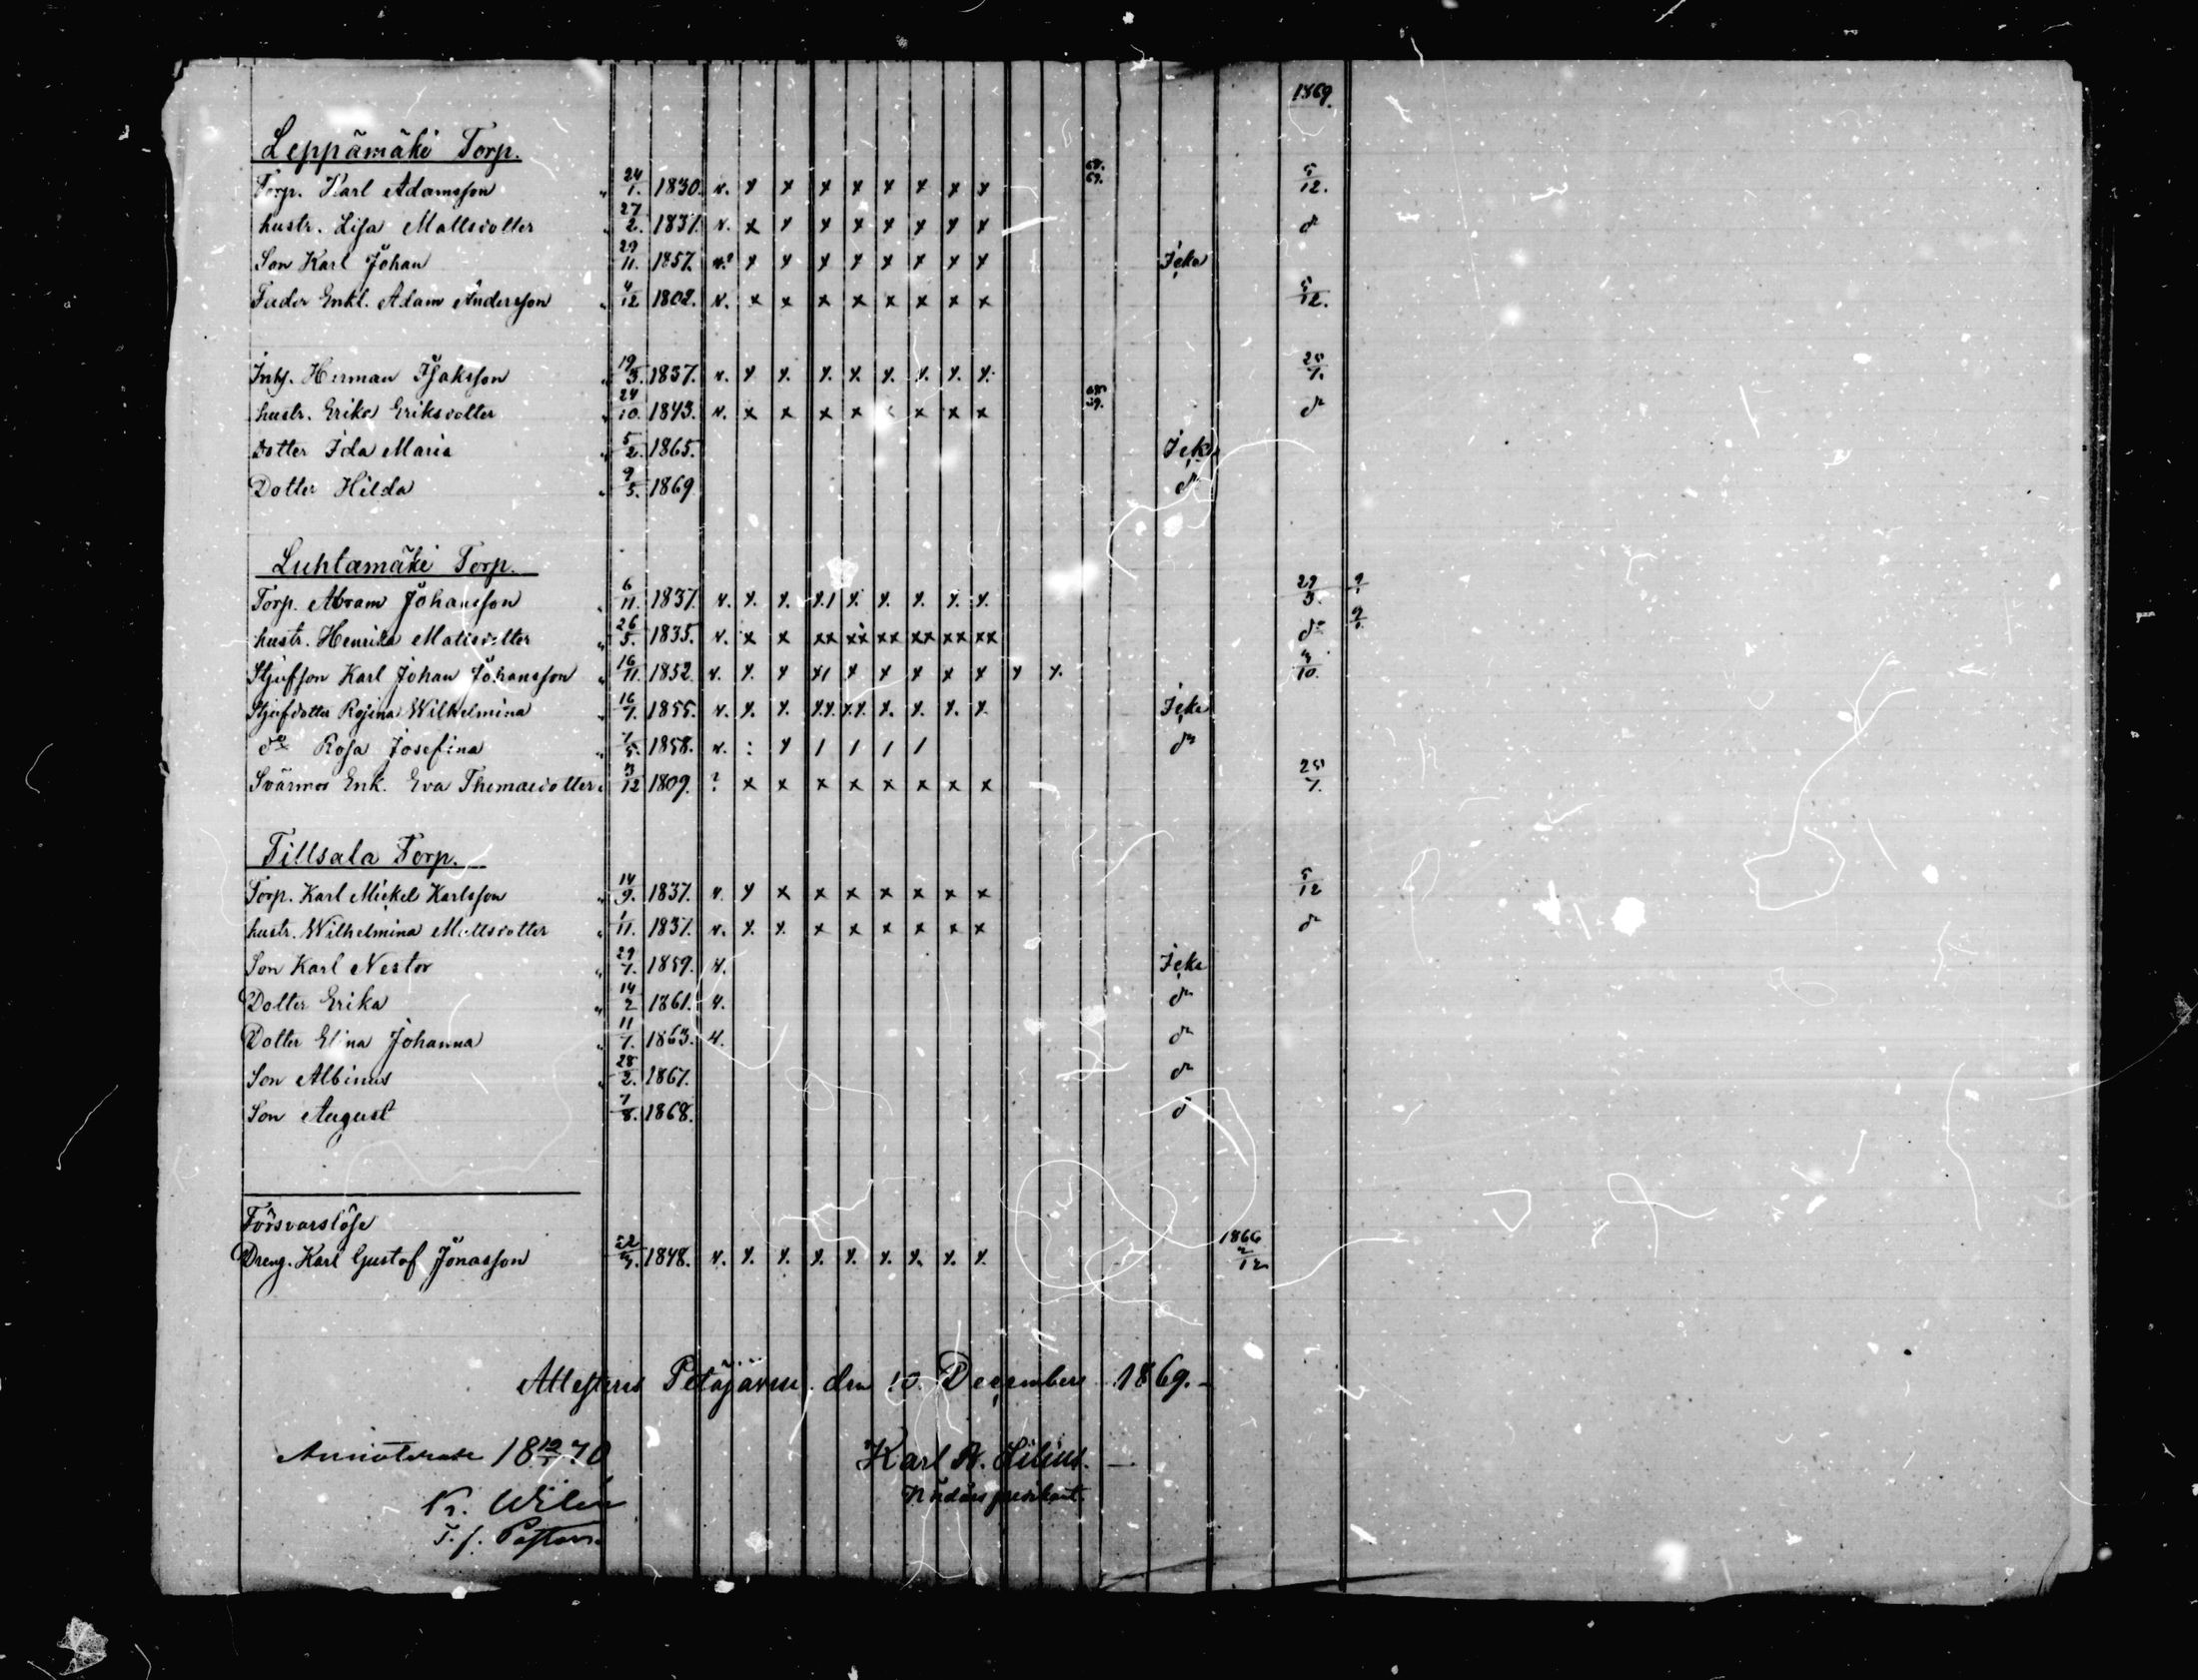 1869.
Leppämäki Torp.
Torp. Karl Adamsson " 24/1. 1830. v. x x x x x x x x 68. 69. 5/12.
hustr. Lisa Mattsdotter " 27/2. 1831. v. x x x x x x x x do
Son Karl Johan 29/11. 1857. v.? x x x x x x x x Icke
Fader Enkl. Adam Andersson " 4/12 1802. v. x x x x x x x x 5/12.
Inhs. Herman Isaksson " 19/3. 1837. v. x x. x. x. x. x. x. x. 25/7.
hustr. Erika Eriksdotter " 24/10. 1843. v. x x x x x x x x do
Dotter Ida Maria " 5/2. 1865. Icke
Dotter Hilda " 9/5. 1869 do
Luhtamäki Torp.
Torp. Abram Johansson " 6/11. 1837. v. x. x. x1 x. x. x. x. x. 29/3.
hustr. Henrika Matsdotter " 26/5. 1835. v. x x xx xx xx xx xx xx do
Stjufson Karl Johan Johansson " 16/11. 1852. v. x. x x1 x x x x x x x. 3/10.
Stjufdotter Rosina Wilhelmina " 16/7. 1855. v. x. x. x.x. x.x. x. x. x. x. Icke
do Rosa Josefina " 7/5. 1858. v. : x 1 1 1 1 do
Svärmor Enk. Eva Thomasdotter " 3/12 1809. ? x x x x x x x x 25/7.
Tillsala Torp.
Torp. Karl Mickel Karlsson " 14/9. 1837. v. x x x x x x x x 5/12
hustr. Wilhelmina Mattsdotter " 1/11. 1837. v. x. x. x x x x x x do
Son Karl Nestor " 29/7. 1859. v. Icke
Dotter Erika " 14/2 1861. v. do
Dotter Elina Johanna " 11/7. 1863. v. do
Son Albinus " 28/2. 1867. do
Son August 7/8. 1868. do
Försvarslöse
Dreng. Karl Gustof Jonasson 1848. v. x. x. x. x. x. x. x. x. 1866 2/12
Attesteras Petäjärvi den 10 December 1869.
Annoterade 18 12/1 70 Karl A. Lilius.
K. Wilén Nådårspredikant.
T.f. Pastor.